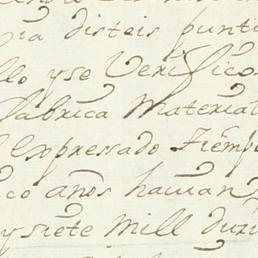 ia disteis punt
llo yse Verifico
fabrica Material
l Expressado tiemp
co años havian
y siete mill duz